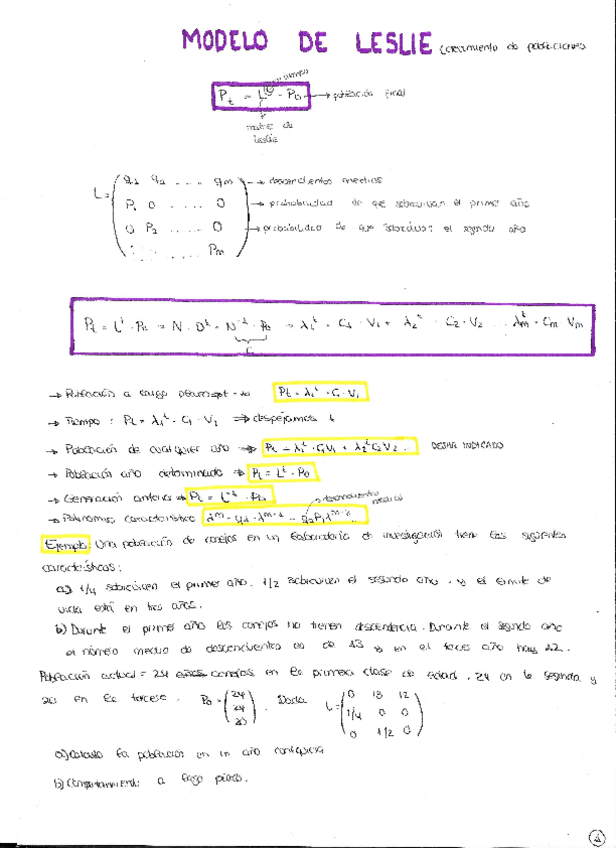 MODELO DE LESLIE (crecimiento de poblaciones
→ tiempo
Pt = L^t · P0 → población final
matriz de Leslie
L = ( q1 q2 .... qm ) → descendientes medios
P1 0 ..... 0 → probabilidad de que sobrevivan el primer año
0 P2 ..... 0 → probabilidad de que sobrevivan el segundo año
Pm
Pt = L^t · P0 = N · D^t · N^-1 · P0 = λ1^t · C1 · V1 + λ2^t · C2 · V2 ... λm^t · Cm Vm
C
→ Población a largo Pt = λ1^t · C1 · V1
→ Tiempo : Pt = λ1^t · C1 · V1 ⇒ despejamos t
→ Población de cualquier año ⇒ Pt = λ1^t C1 V1 + λ2^t C2 V2 ... DEJAR INDICADO
→ Población año determinado ⇒ Pt = L^t · P0
→ Generación anterior ⇒
→ Polinomio característico
Ejemplo: Una población de conejos en un laboratorio de investigación tiene las siguientes
características:
a) 1/4 sobreviven el primer año. 1/2 sobreviven el segundo año. y el límite de
vida está en tres años.
b) Durante el primer año los conejos no tienen descendencia. Durante el segundo año
el número medio de descendientes es de 13 y en el tercer año hay 12.
Población actual = 24 conejos en la primera clase de edad, 24 en la segunda y
20 en la tercera. P0 = (24 24 20). Dada L = ( 0 13 12
1/4 0 0
0 1/2 0 )
a) Calcula la población en un año
b) Comportamiento a largo plazo.